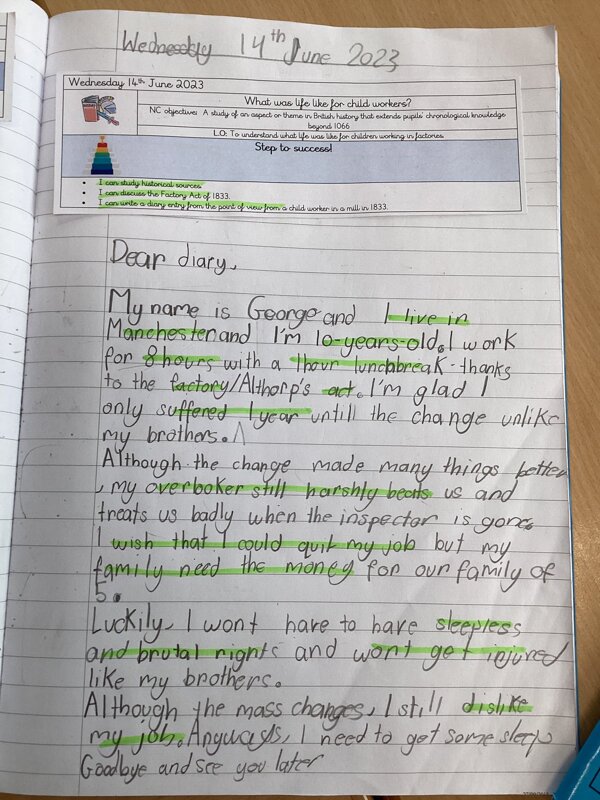 Wednesdy 14th June 2023
Wednesday 14th June 2023
What was life like for child workers?
NC objective: A study of an aspect or theme in British history that extends pupils' chronological knowledge
beyond 1066
LO: To understand what life was like for children working in factories.
Step to success!
• I can study historical sources.
• I can discuss the Factory Act of 1833.
• I can write a diary entry from the point of view from a child worker in a mill in 1833.
Dear diary,
My name is George and I live in
Manchester and I'm 10-years-old. I work
for 8 hours with a 1hour lunchbreak - thanks
to the factory/Althorp's act. I'm glad I
only suffered 1 year untill the change unlike
my brothers.
Although the change made many things better
, my overboker still harshly beats us and
treats us badly when the inspector is gone.
I wish that I could quit my job but my
family need the money for our family of
5.
Luckily, I wont have to have sleepless
and brutal nights and wont get injured
like my brothers.
Although the mass changes, I still dislike
my job. Anyways, I need to get some sleep
Goodbye and see you later